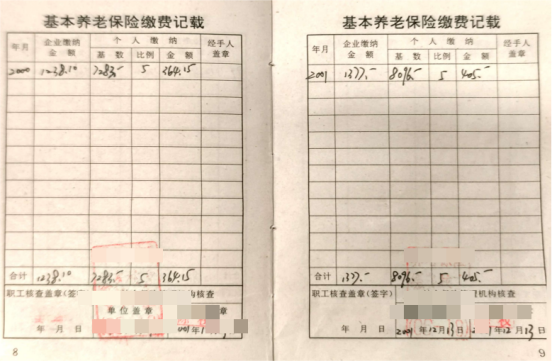 基本养老保险缴费记载
年月 企业缴纳金额 个人缴纳 经手人盖章
基数 比例 金额
2000 1238.10 7283.- 5 364.15
合计 1238.10 7283.- 5 364.15
职工核查盖章(签 构核查
单位盖章
年 月 日
8
基本养老保险缴费记载
年月 企业缴纳金额 个人缴纳 经手人盖章
基数 比例 金额
2001 1377.- 8096.- 5 405.-
合计 1377.- 8096.- 5 405.-
职工核查盖章(签字) 机构核查
年 月 日 2001年12月13日 年12月13日
9